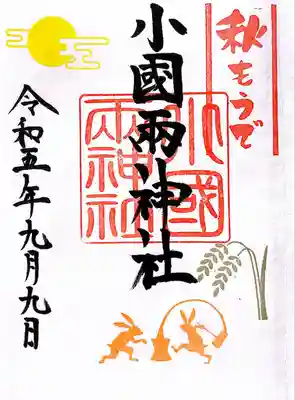 秋もうで
小國両神社
小國両神社
令和五年九月九日